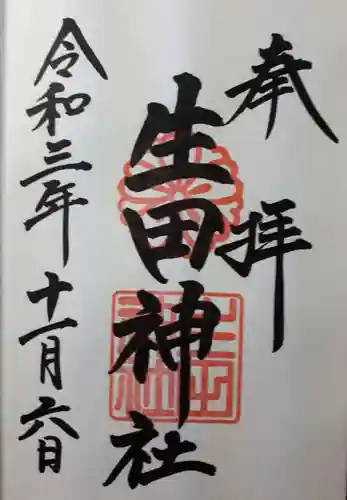 奉拝
生田神社
令和三年十一月六日